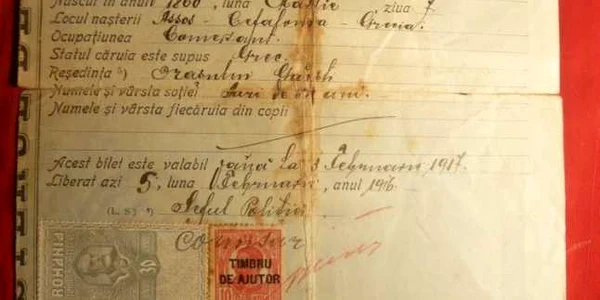 Născut în anul 1860, luna Martie ziua 7
Locul nașterii Assos - Cefalonia - Grecia.
Ocupațiunea Comersant.
Statul căruia este supus Grec.
Reședința Orașului
Numele și vârsta soției de ani.
Numele și vârsta fiecăruia din copii
Acest bilet este valabil până la 5 Februarie 1917.
Liberat azi 5, luna Februarie, anul 1916
(L. S.)
Șeful Poliției
Comisar
30
TIMBRU
DE AJUTOR
10